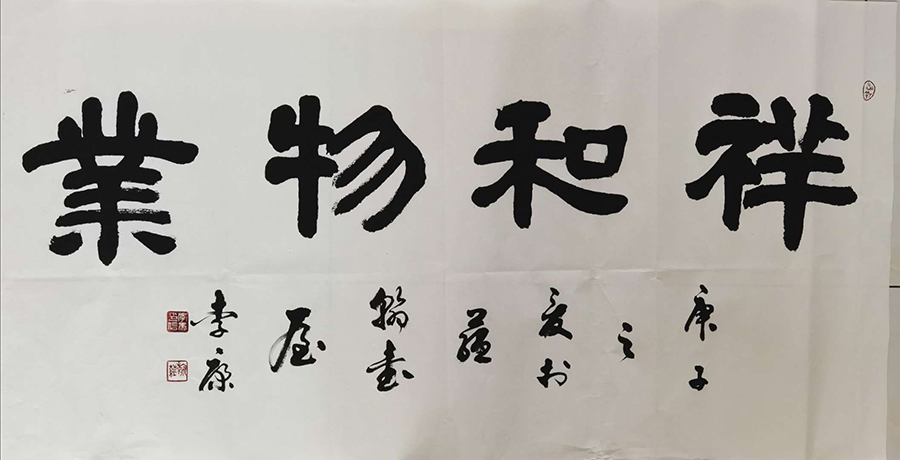 祥和物業
庚子
之
夏於
蘊
翰書
屋
李康